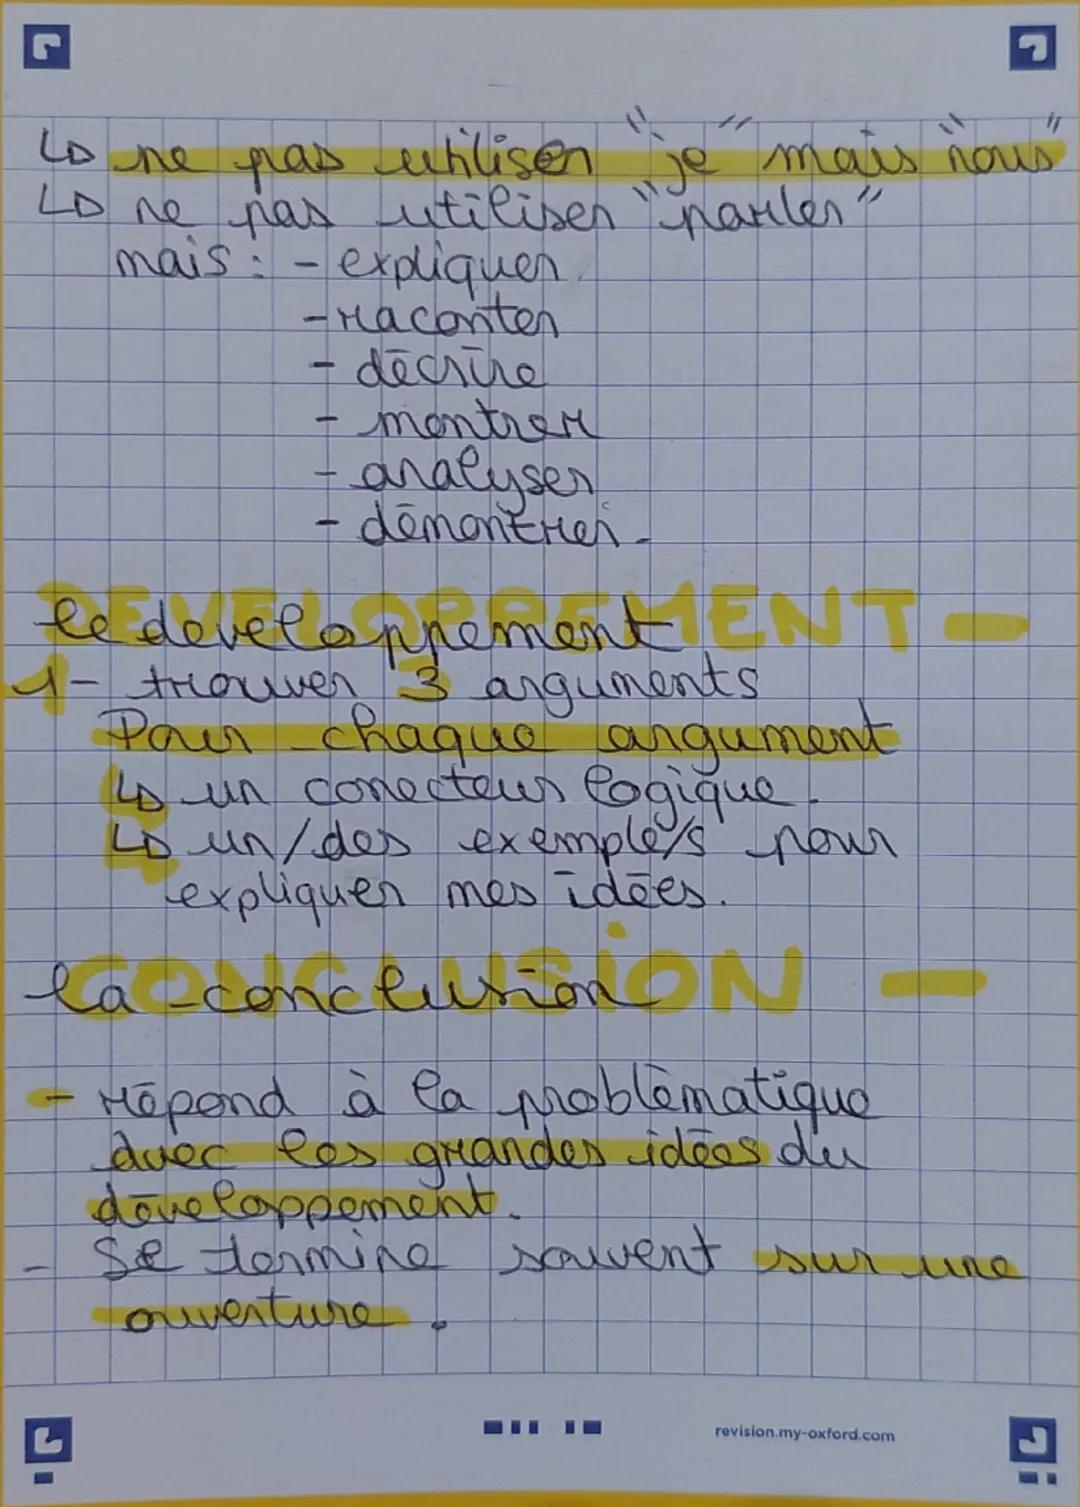 ↳ ne pas utiliser "je" mais "nous"
↳ ne pas utiliser "parler"
mais : - expliquer
- raconter
- décrire
- montrer
- analyser
- démontrer.
DEVELOPPEMENT -
le developpement
1- trouver 3 arguments
Pour chaque argument
↳ un conecteur logique.
↳ un/des exemple/s pour
expliquer mes idées.
CONCLUSION -
la conclusion
- répond à la problématique
avec les grandes idées du
développement.
- Se termine souvent sur une
ouverture.
revision.my-oxford.com